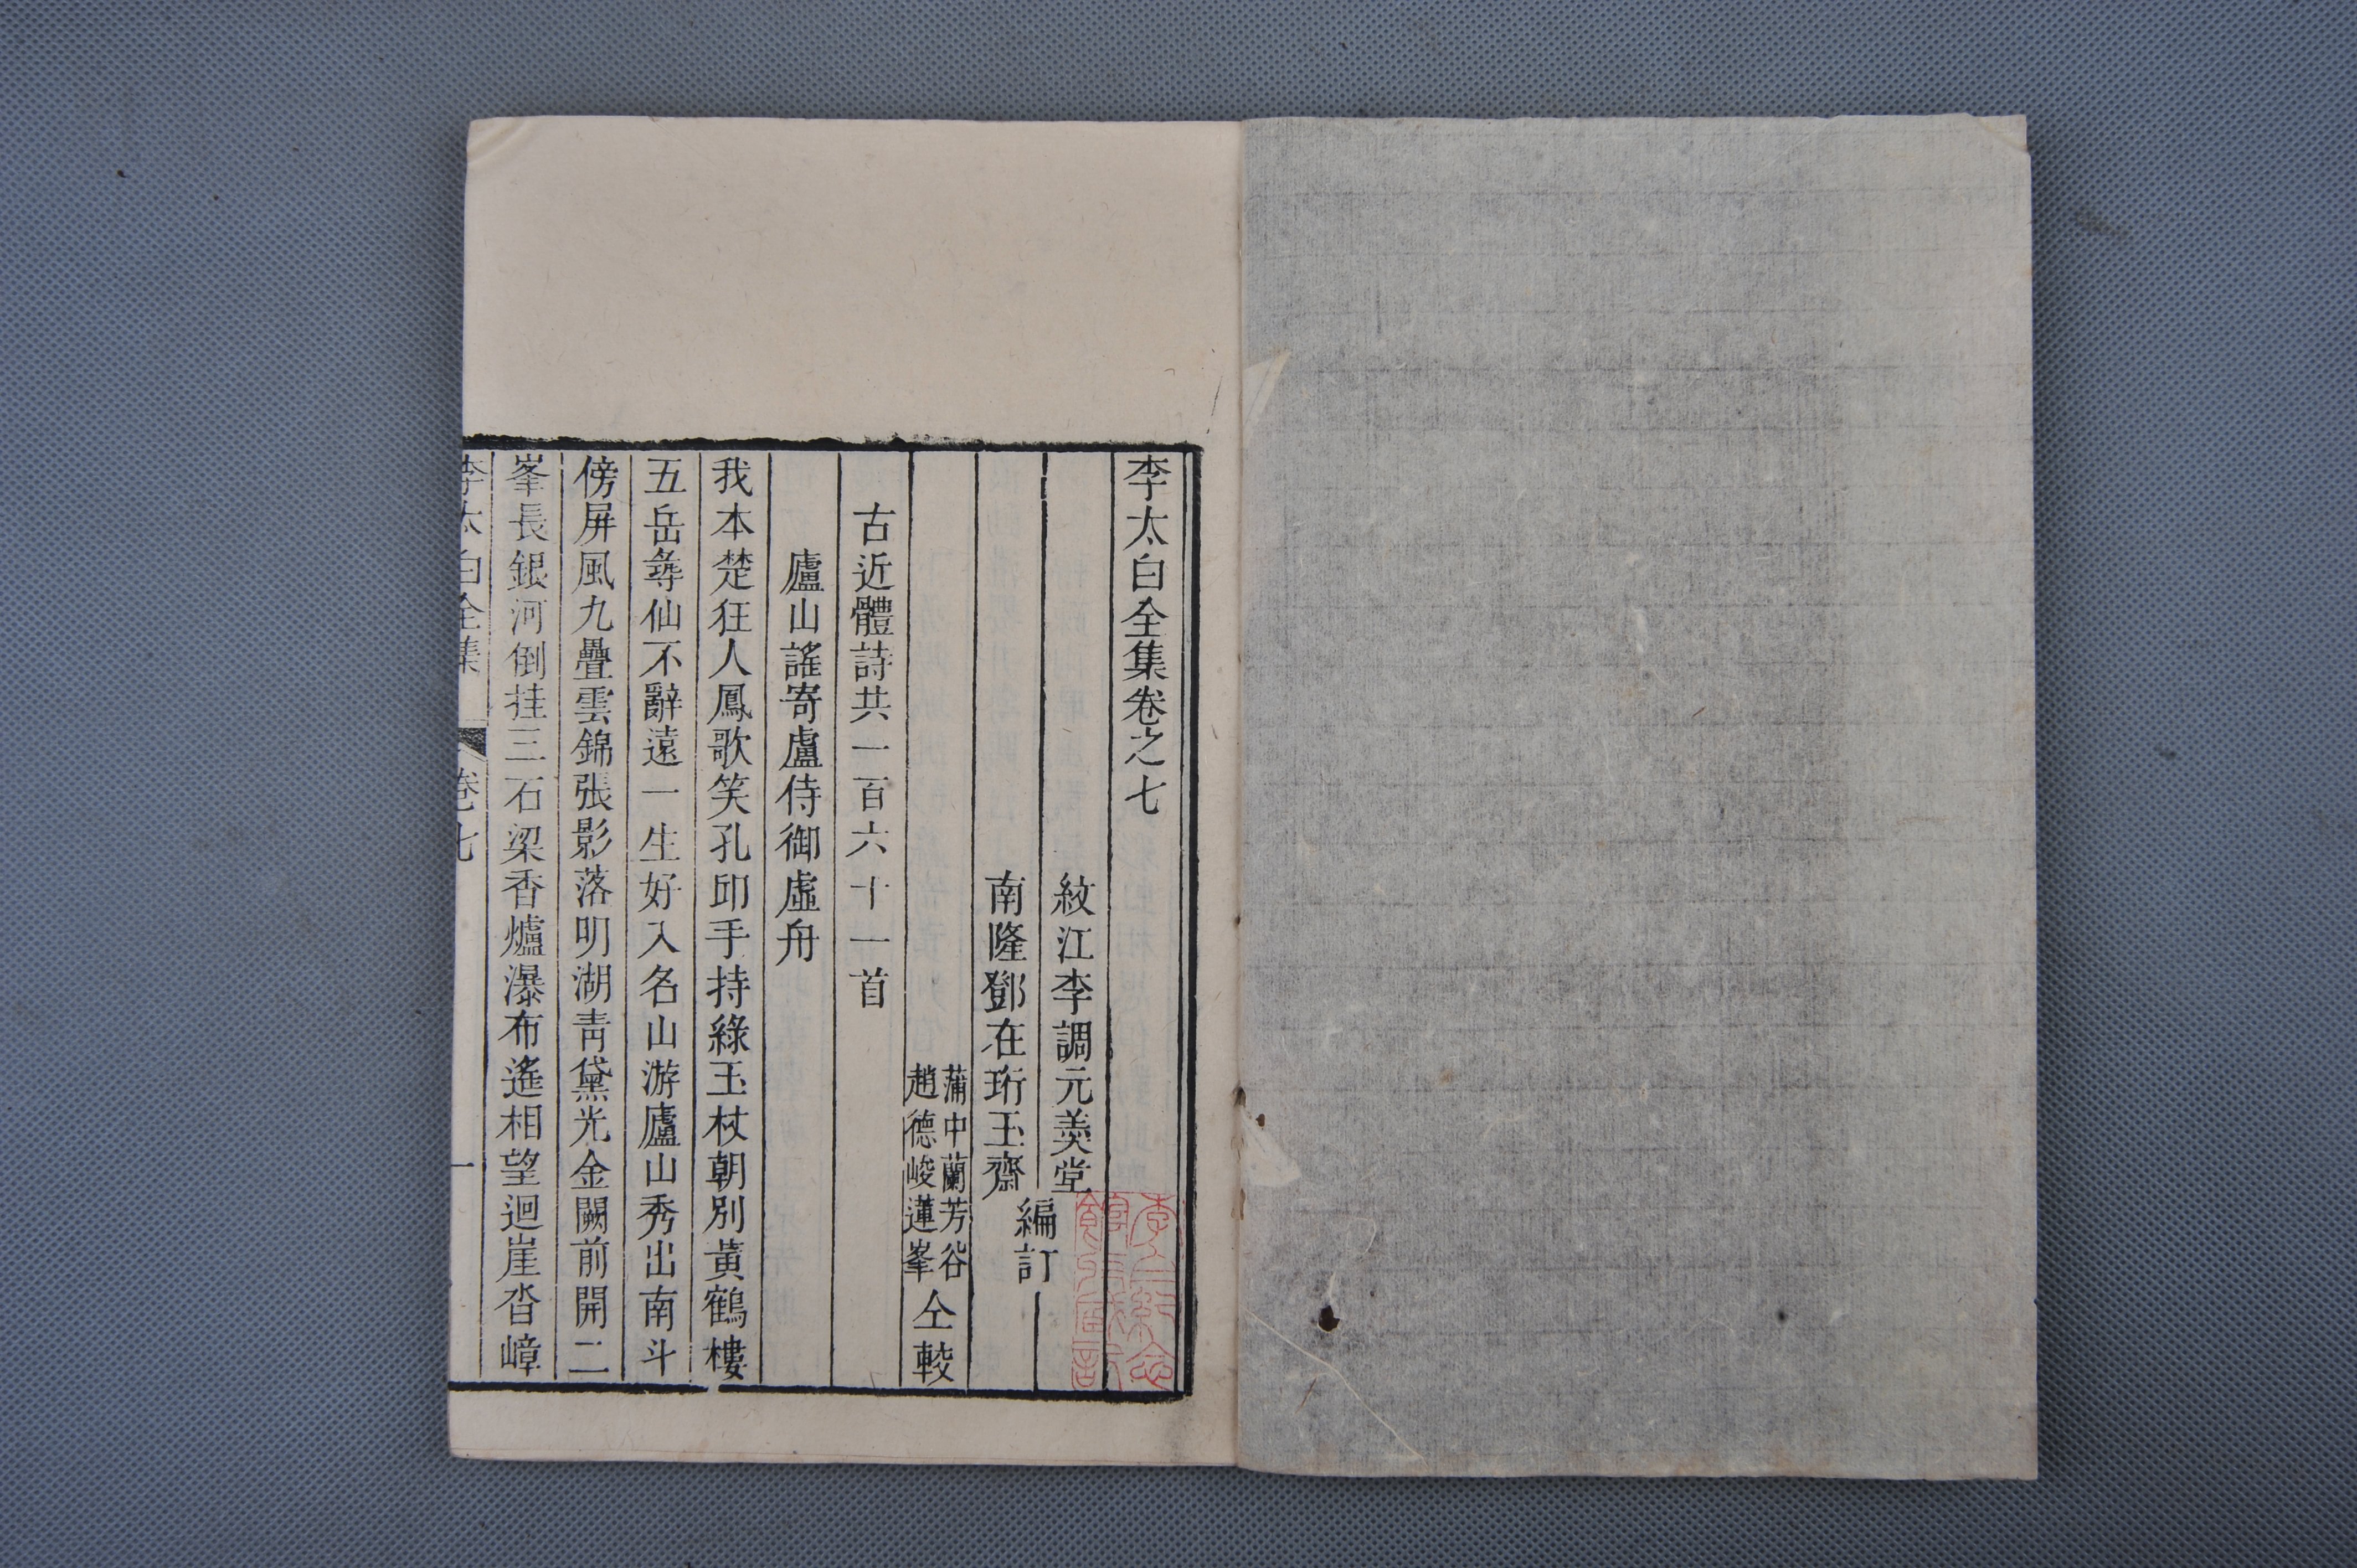 李太白全集卷之七
紋江李調元羹堂
南隆鄧在珩玉齋
編訂
蒲中蘭芳谷
趙德峻蓮峯
仝較
古近體詩共一百六十一首
廬山謠寄盧侍御虛舟
我本楚狂人鳳歌笑孔邱手持綠玉杖朝別黃鶴樓
五岳尋仙不辭遠一生好入名山游廬山秀出南斗
傍屏風九疊雲錦張影落明湖青黛光金闕前開二
峯長銀河倒挂三石梁香爐瀑布遙相望迴崖沓嶂
李太白全集 卷七 一